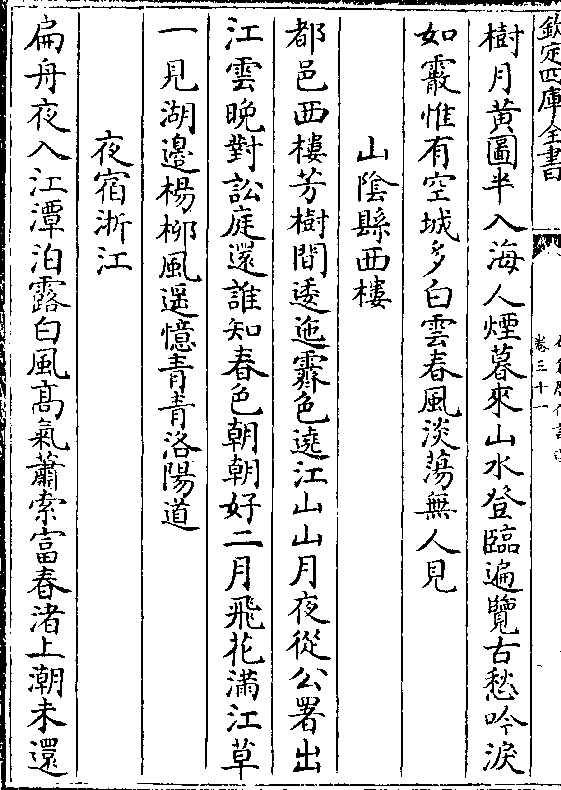 欽定四庫全書
卷三十一
樹月黃圖半入海人煙暮來山水登臨遍覽古愁吟淚
如霰惟有空城多白雲春風淡蕩無人見
山陰縣西樓
都邑西樓芳樹間逶迤霽色遶江山山月夜從公署出
江雲晚對訟庭還誰知春色朝朝好二月飛花滿江草
一見湖邊楊柳風遥憶青青洛陽道
夜宿浙江
扁舟夜入江潭泊露白風髙氣蕭索富春渚上潮未還